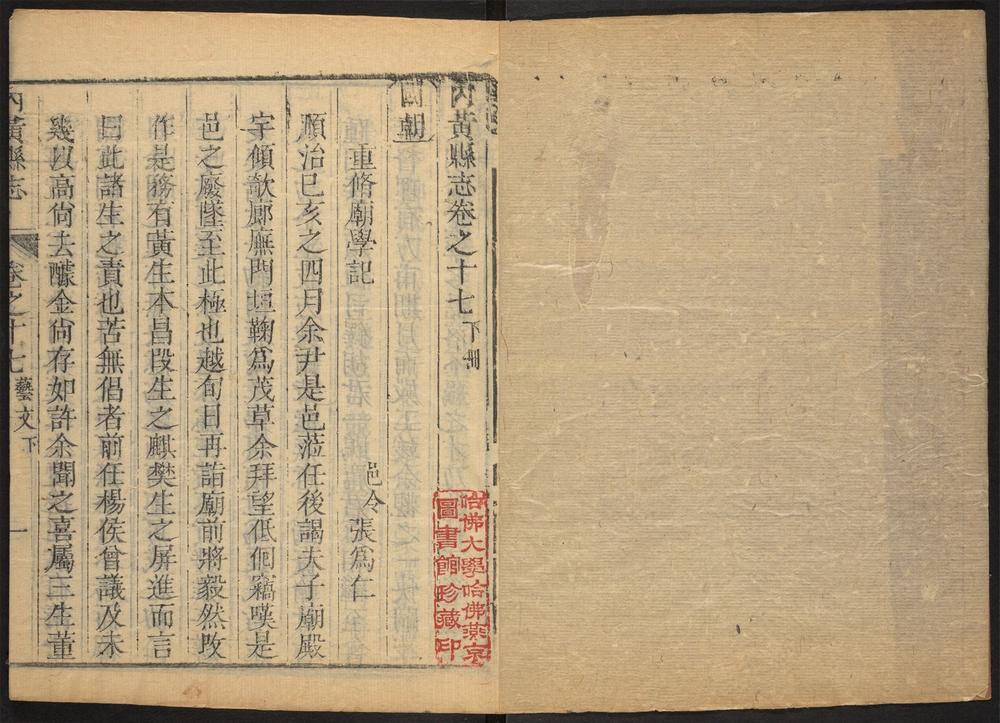 內黃縣志卷之十七下冊
國朝
重修廟學記
邑令張為仁
順治己亥之四月余尹是邑蒞任後謁夫子廟殿
宇傾欹廊廡門垣鞠為茂草余拜望低佪竊嘆是
邑之廢墜至此極也越旬日再詣廟前將毅然改
作是務有黃生本昌段生之麒樊生之屏進而言
曰此諸生之責也苦無倡者前任楊侯曾議及未
幾以高尙去醵金尙存如許余聞之喜屬三生董
內黃縣志
卷之十七藝文下
一
哈佛大學哈佛燕京
圖書館珍藏印